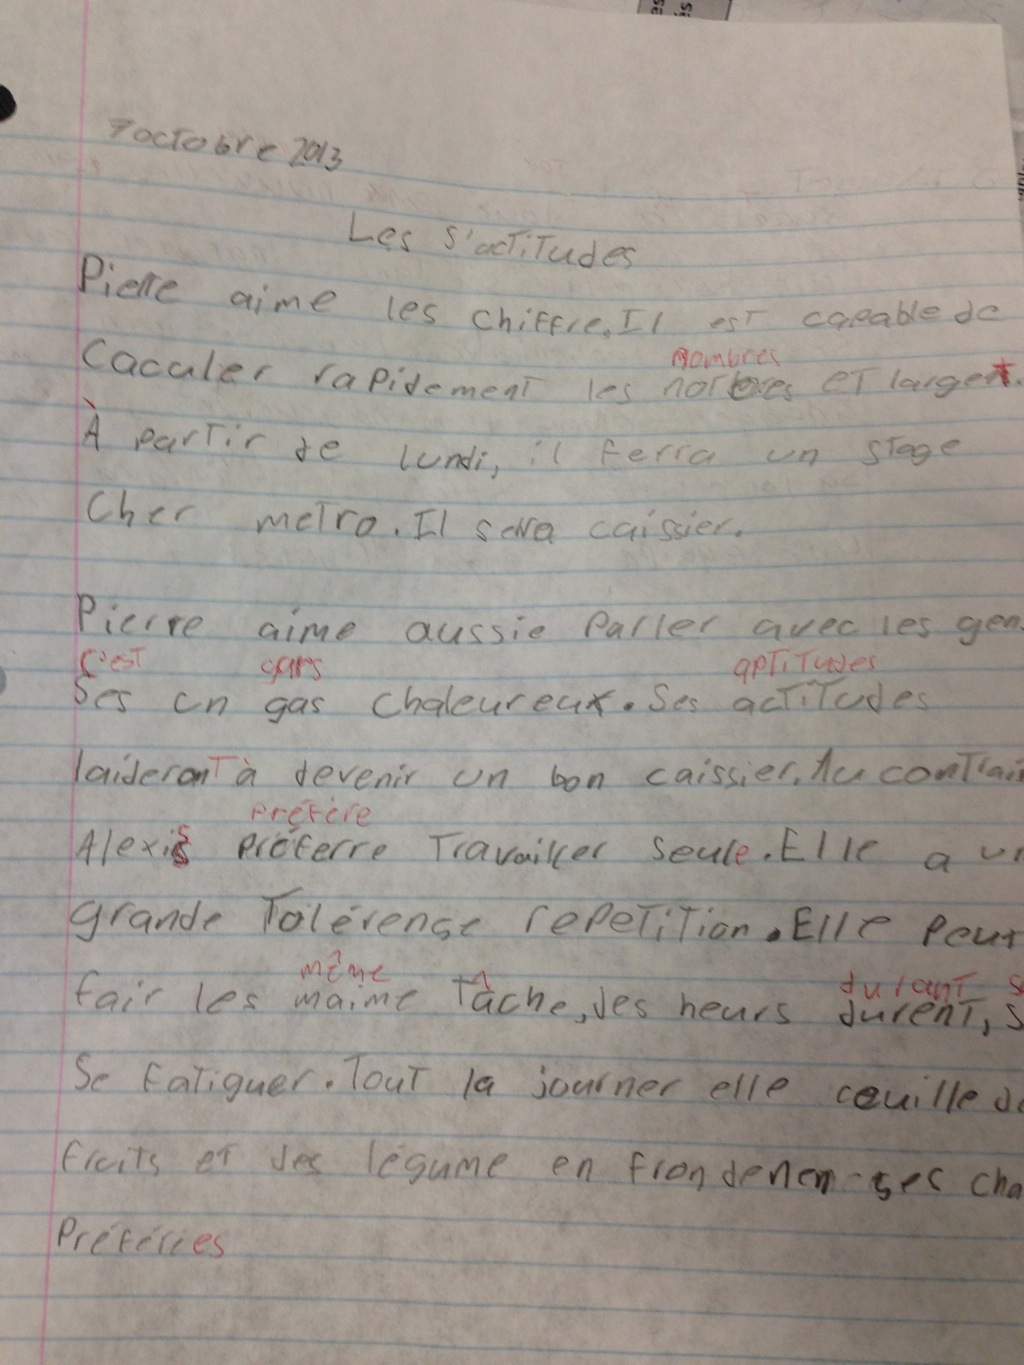 7 octobre 2013
Les s'actitudes
Pierre aime les chiffre. Il est capable de
nombres
Caculer rapidement les et largent.
À partir de lundi, il ferra un stage
Cher metro. Il sera caissier.
Pierre aime aussie parler avec les gens
C'est gars aptitudes
Ses un gas chaleureux. Ses actitudes
laideront à devenir un bon caissier. Au contrair
préfère
Alexis préferre travailler seule. Elle a un
grande tolérense repetition. Elle peut
même durant
fair les maime tâche, des heurs durent, s
Se fatiguer. Tout la journer elle ceuille de
fruits et des légume en frondenen ses cha
Préféries